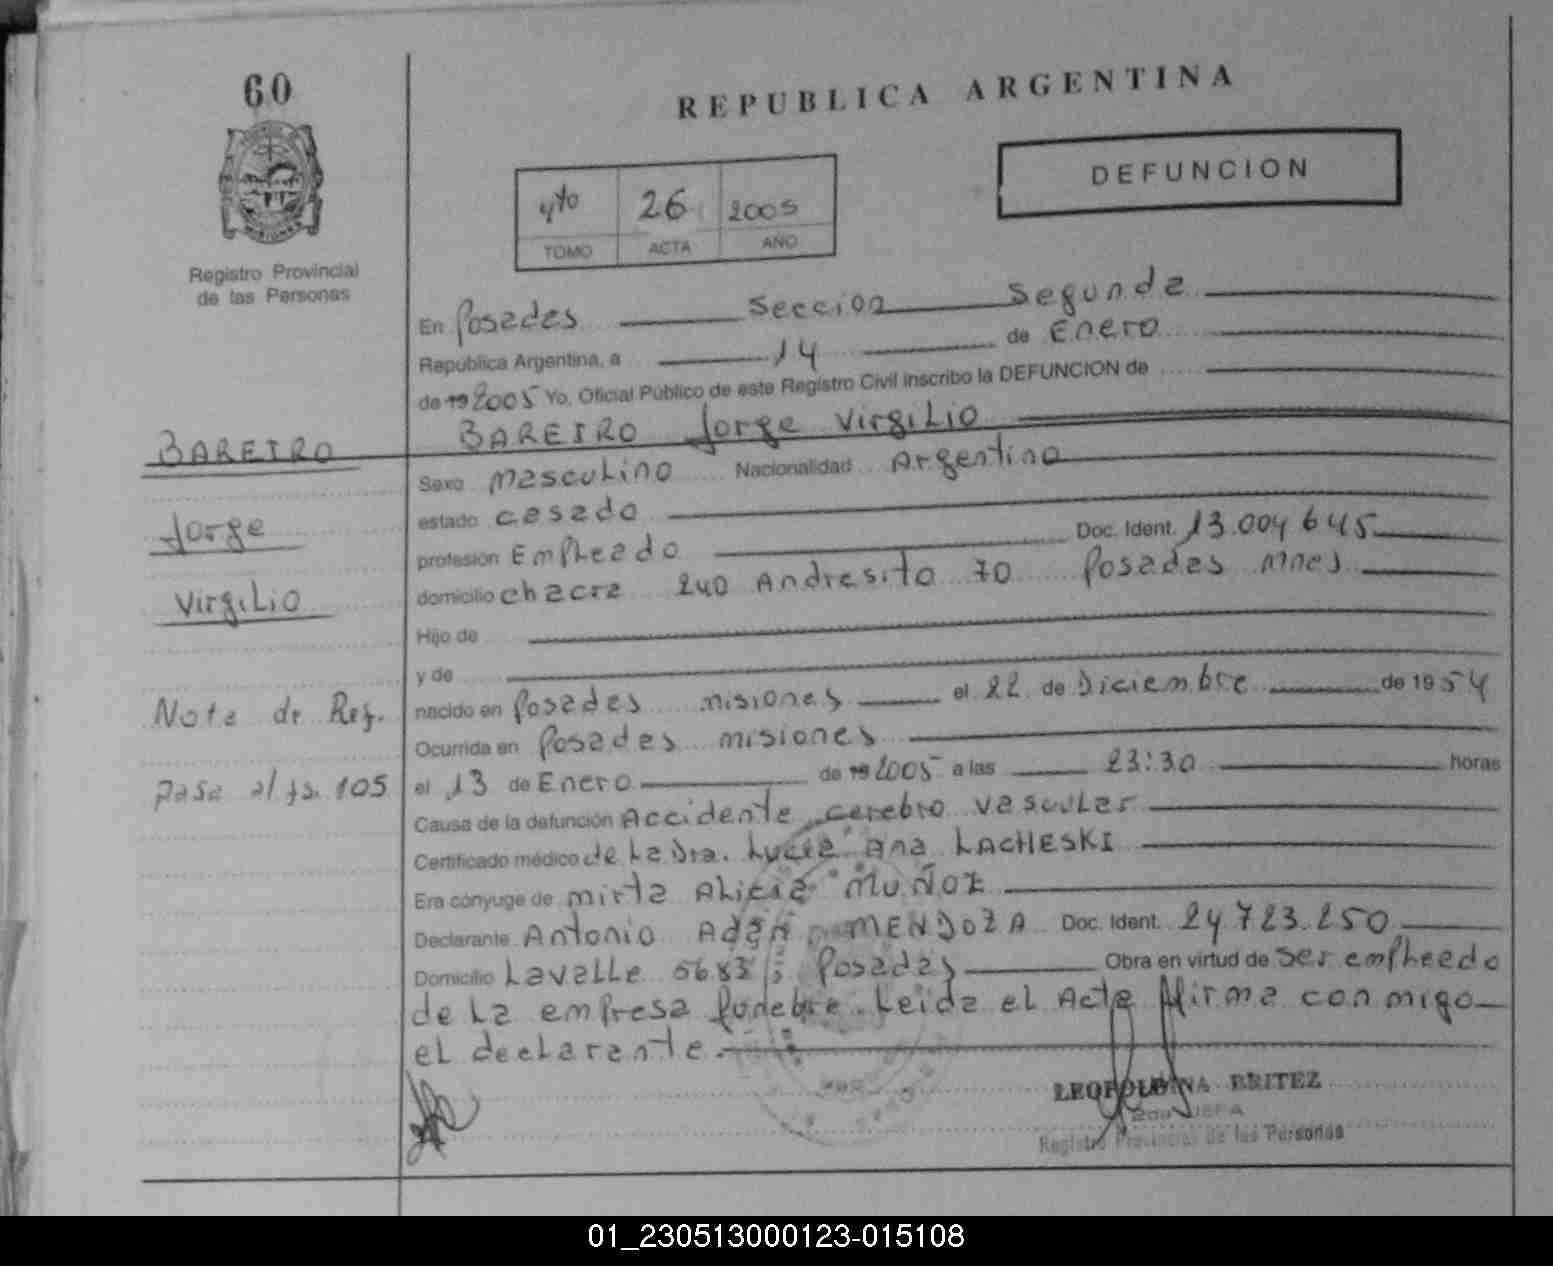 60
REPUBLICA ARGENTINA
DEFUNCION
4to 26 2005
TOMO ACTA AÑO
Registro Provincial
de las Personas
En Posadas Sección Segunda
República Argentina, a 14 de Enero
de 19 2005 Yo, Oficial Público de este Registro Civil inscribo la DEFUNCION de
BAREIRO Jorge Virgilio
BAREIRO
Jorge
Virgilio
Sexo Masculino Nacionalidad Argentino
estado casado
profesión Empleado Doc. Ident. 13.004645
domicilio chacra 240 Andresito 70 Posadas Mnes
Hijo de
y de
Nota de Ref.
pasa al fs. 105
nacido en Posadas misiones el 22 de Diciembre de 1954
Ocurrida en Posadas misiones
el 13 de Enero de 19 2005 a las 23:30 horas
Causa de la defunción Accidente cerebro vascular
Certificado médico de La Dra. Lucia Ana LACHESKI
Era cónyuge de mirta Alicia MUÑOZ
Declarante Antonio Adan MENDOZA Doc. Ident. 24.723.250
Domicilio Lavalle 5683; Posadas Obra en virtud de ser empleado
de La empresa funebre. Leida el Acta firma conmigo
el declarante.
LEOPOLDINA BRITEZ
2da JEFA
Registro Provincial de las Personas
01_230513000123-015108